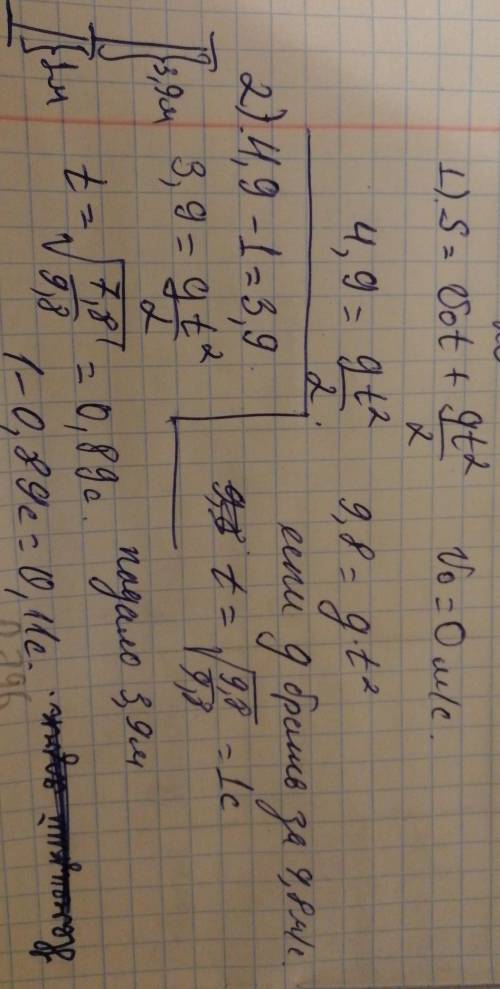 1). S = v₀t + gt²/2 v₀ = 0 м/с.
4,9 = gt²/2. 9,8 = g·t²
если g брать за 9,8 м/с.
t = √(9,8/9,8) = 1с
2). 4,9 - 1 = 3,9
3,9 = gt²/2
}3,9м
}1м
t = √(7,8/9,8) = 0,89с. падало 3,9м
1 - 0,89с = 0,11с.